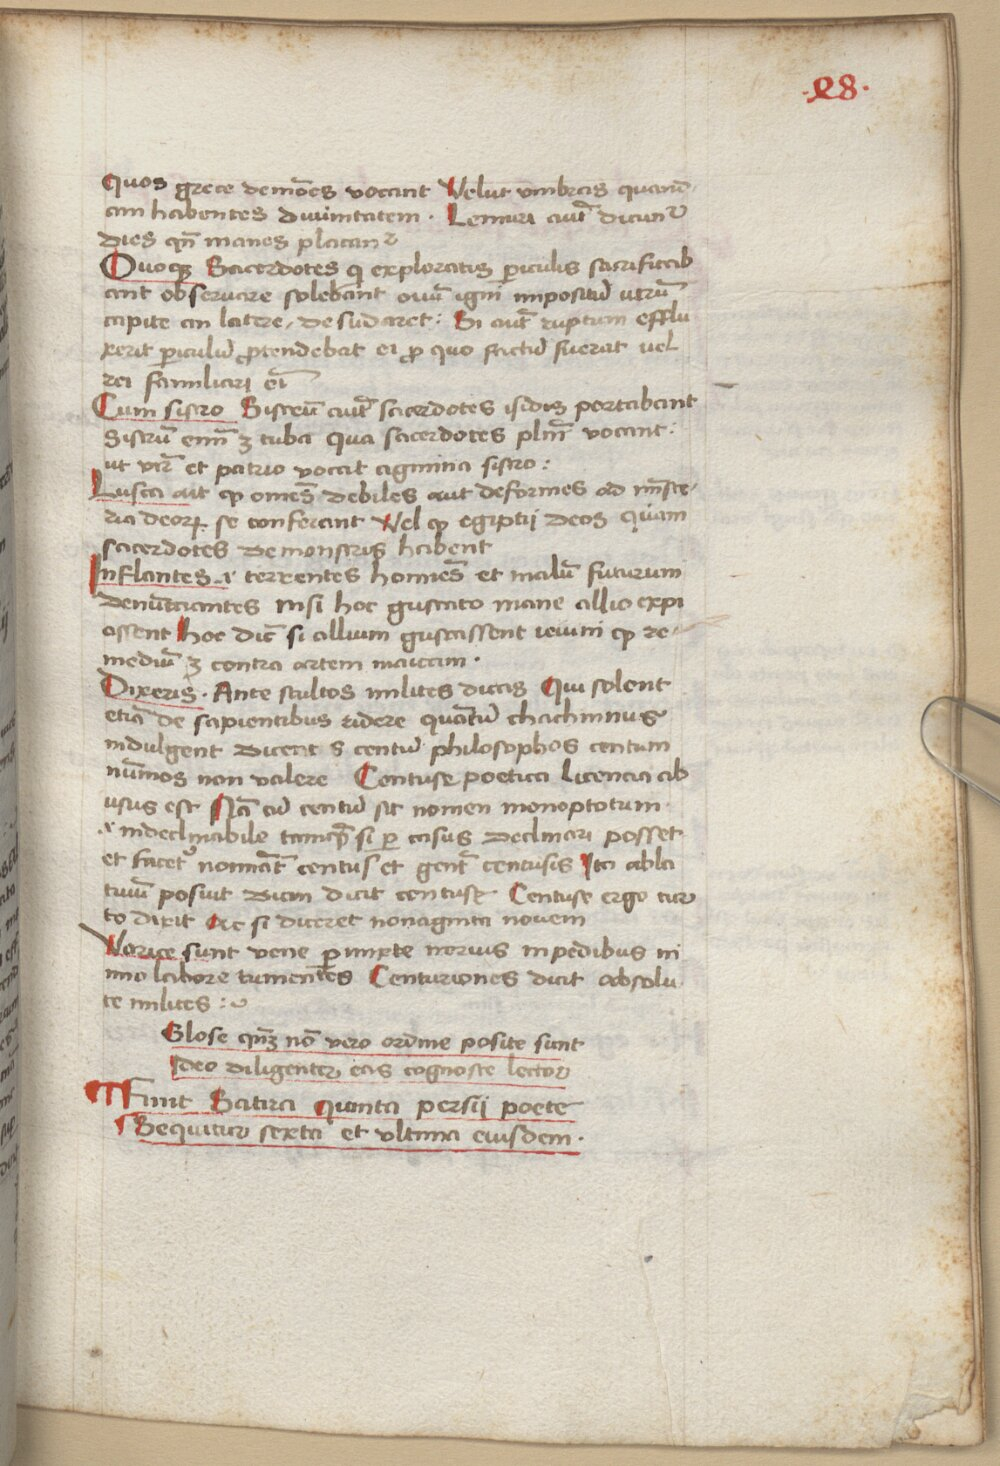 ·48·
Quos grece demōes vocant Velut vmbras quand
am habentes diuinitatem · Lemuri autē dicunt᷑
dies qn̄ manes placant᷑
Ouoqꝫ Sacerdotes q̇ exploratis ꝑiculis sacrificab
ant obseruare solebant ouū igni impositū vtrum
capite an latere, desudaret: Si autē ruptum efflu
xerit ꝑiculū ꝓtendebat ei ꝓ quo factū fuerat vel
rei familiari eī
Cum sistro Sistrū autē sacerdotes isidis portabant
Sistrū enim ꝫ tuba qua sacerdotes plm̄ vocant:
ut vir̄ et patrio vocat agmina sistro:
Lusca ait ꝙ omēs debiles aut deformes ad miste-
ria deoꝝ se conferant Vel ꝙ egiptij deos quam
sacerdotes demonstris habent
Inflantes .i. terrentes homiēs et malū futurum
denūtiantes nisi hoc gustato mane allio expi
assent Hoc dic̄ si allium gustassent ieiuni ꝙ re-
mediū ꝫ contra artem maicam ·
Dixeris · Ante stultos milites dicas Qui solent
etiā de sapientibus ridere quātū chachinnus
indulgent Dicent s centū philosophos centum
nūmos non valere Centuse poetica licencia ab
usus est Nā cū centū sit nomen monoptotum
.i. indeclinabile tamqꝫ si ꝑ casus declinari posset
et facet᷑ nominat̄ centus et genit̄ centusis Ita abla
tiuū posuit dum dicit centuse Centuse ergo cur
to dixit Ac si diceret nonaginta nouem
Varice sunt vene ꝑmixte neruis in pedibus ni
mio labore tumentes Centuriones dicit absolu
te milites :~
Glose qm̄ nō vero ordine posite sunt
Ideo diligenter eas cognosce lector
Finit Satira Quinta persij poete
Sequitur sexta et vltima eiusdem ·